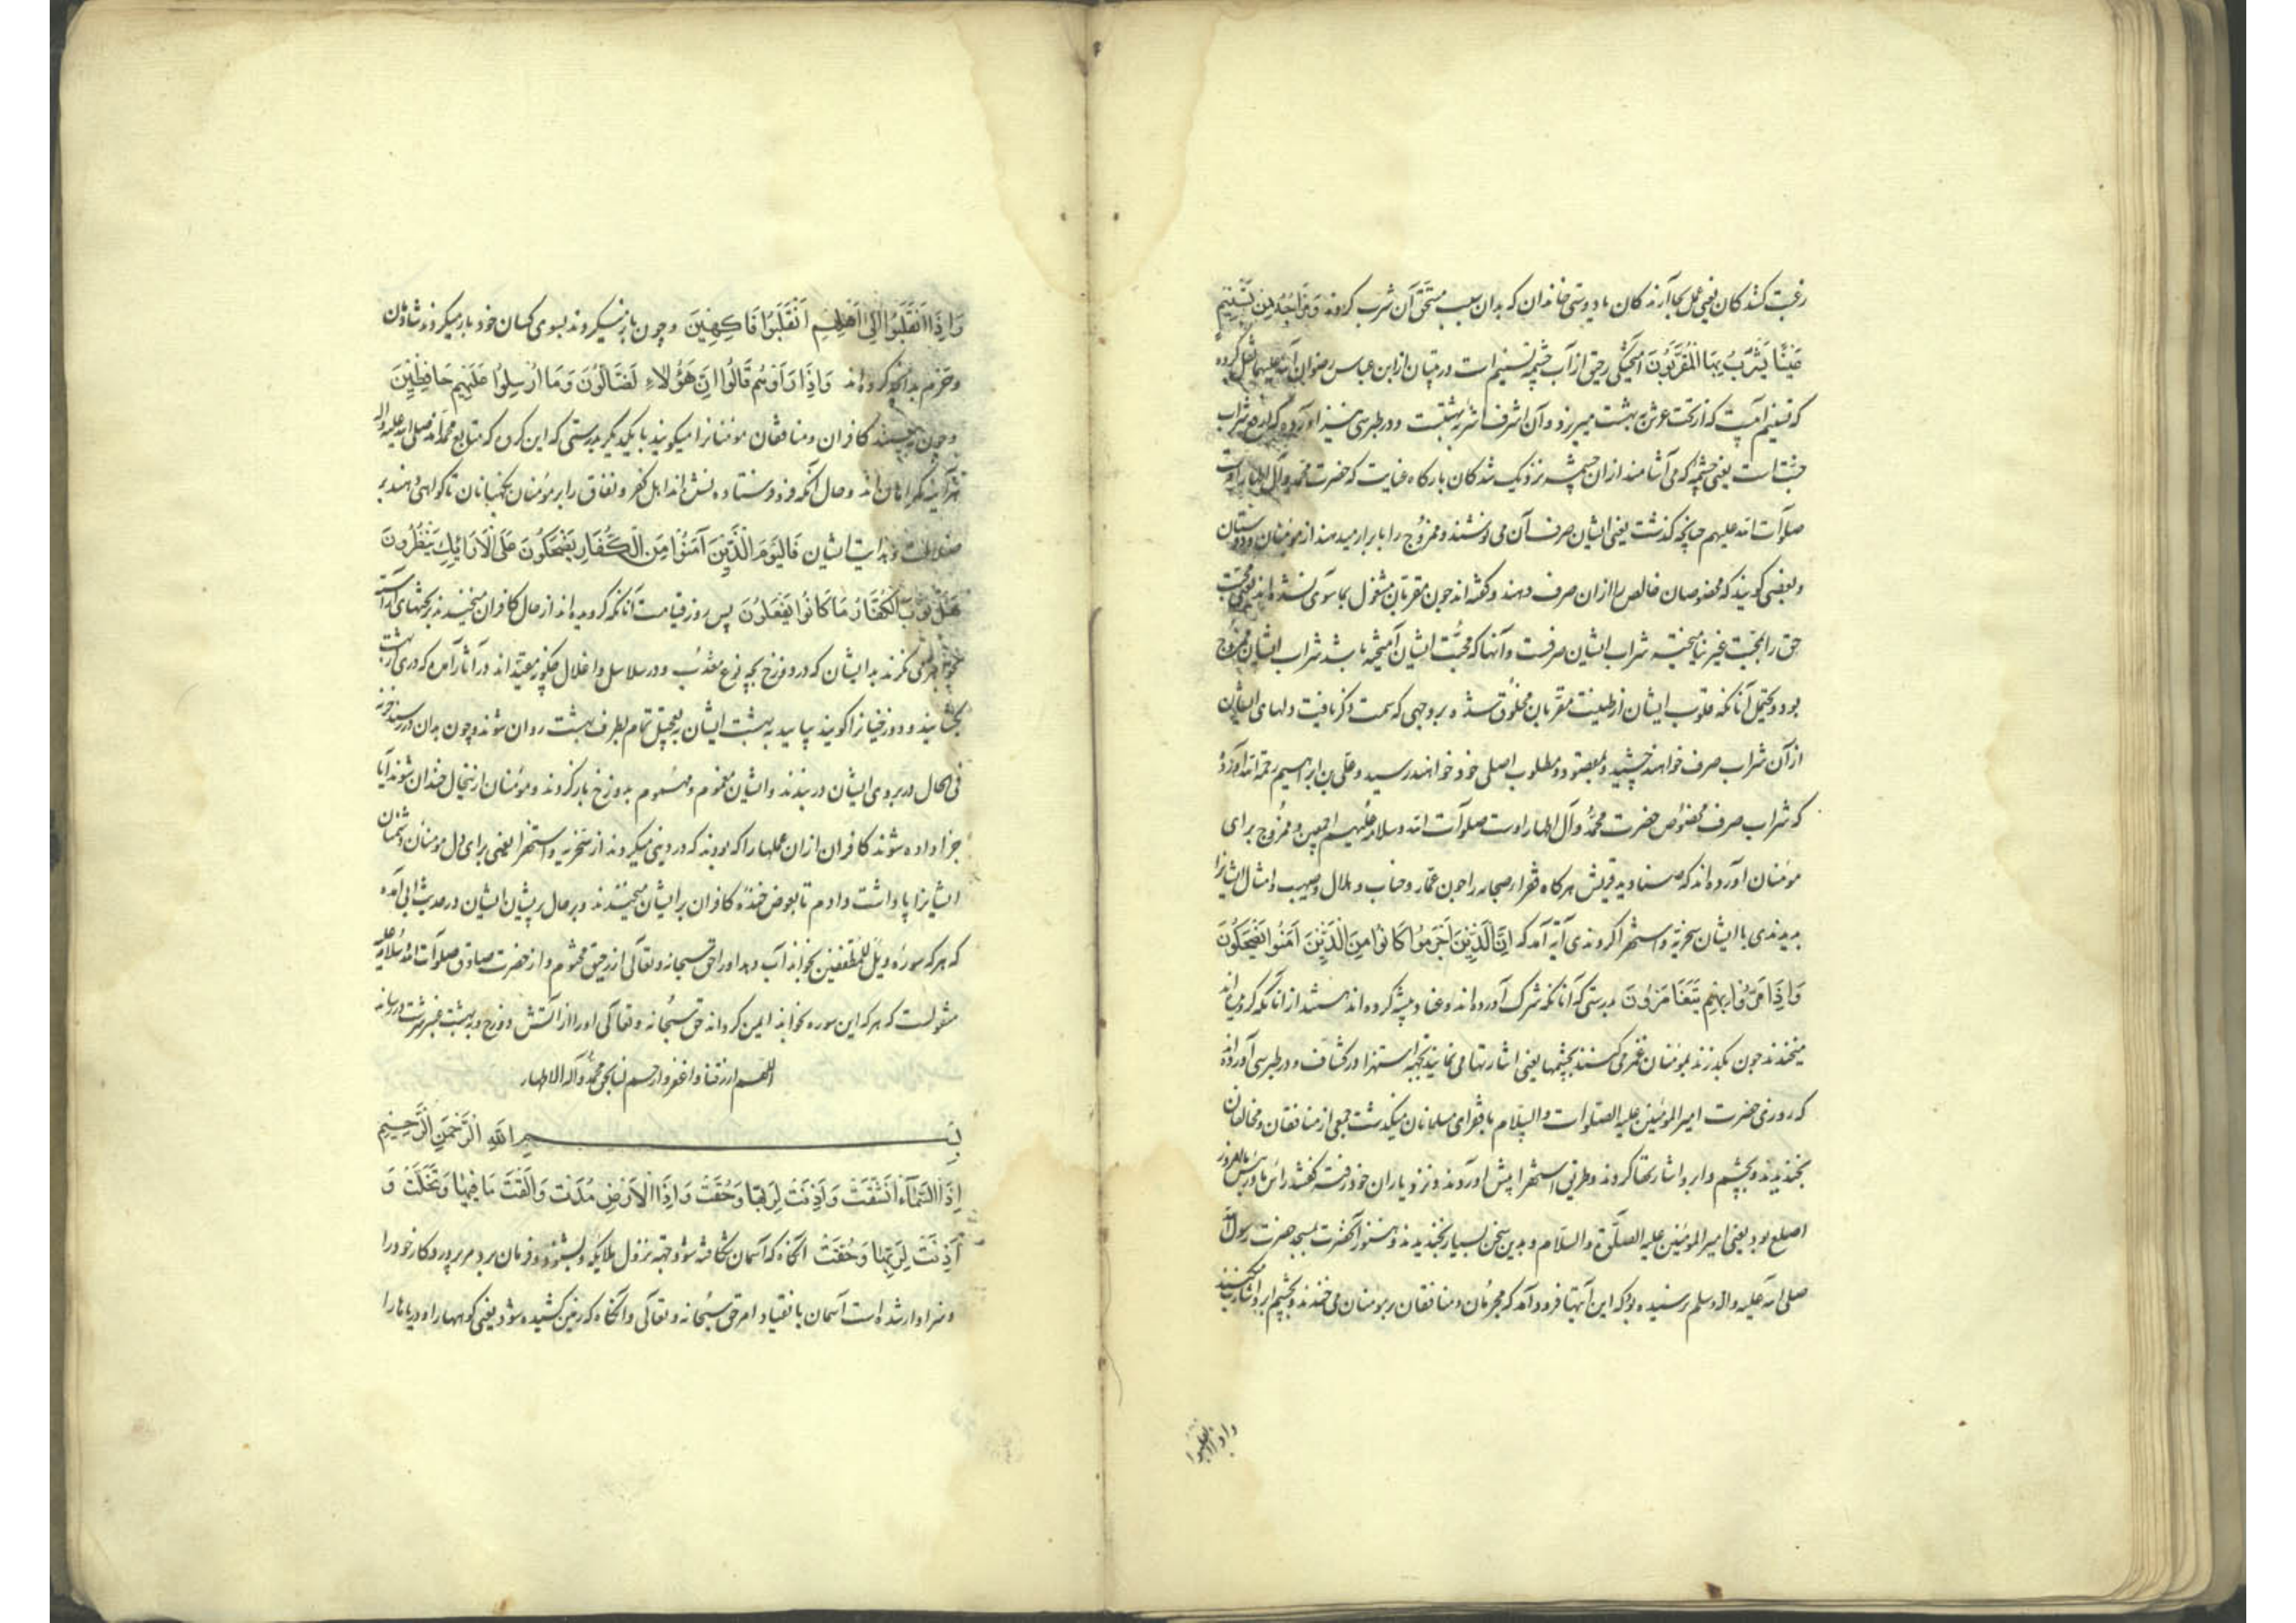 رغبت کنندکان یعنی عمل بجا آرندکان با دوستی خاندان که بدان سبب مستحق آن شرب کردند وَمِزَاجُهُ مِن تَسْنِیمٍ
عَیْنًا یَشْرَبُ بِهَا الْمُقَرَّبُونَ آمیختگی رحیق از آب چشمه تسنیم است در تبیان از ابن عباس رضوان الله علیهما نقل کرده
که تسنیم آبیست که از تحت عرش به بهشت میریزد و آن اشرف اشربه بهشتست و در طبرسی نیز آورده که شراب
جنت است یعنی چشمه که می آشامند از ان چشمه نزدیک شدکان بارکاه عنایت که حضرت محمد و آل اطهار اوست
صلوات الله علیهم چنانچه گذشت یعنی ایشان صرف آن می نوشند و ممزوج را بابرار میدهند از مومنان و دوستان
و بعضی کویند که مخصوصان خالص را از ان صرف دهند و کفته اند چون مقربان مشغول بما سوی نشده اند و محبت
حق را بمحبت غیر نیامیخته شراب ایشان صرفست و آنها که محبت ایشان آمیخته باشد شراب ایشان ممزوج
بود و یحتمل آنانکه قلوب ایشان از طینت مقربان مخلوق شده بر وجهی که سمت ذکر یافت دلهای ایشان
از آن شراب صرف خواهند چشید و بمقصود و مطلوب اصلی خود خواهند رسید و علی بن ابراهیم رحمه الله آورده
که شراب صرف مخصوص حضرت محمد و آل اطهار اوست صلوات الله وسلامه علیهم اجمعین و ممزوج برای
مومنان آورده اند که صنادید قریش هرکاه فقراء صحابه را چون عمار و خباب و بلال و صهیب و امثال ایشانرا
بدیدندی با ایشان سخریه و استهزا کردندی آیه آمد که اِنَّ الَّذِینَ اَجْرَمُوا کَانُوا مِنَ الَّذِینَ آمَنُوا یَضْحَکُونَ
وَاِذَا مَرُّوا بِهِمْ یَتَغَامَزُونَ بدرستی که آنانکه شرک آورده اند و عناد پیشه کرده اند هستند از آنانکه کرویده اند
میخندند چون بکذرند بمومنان غمز می کنند بچشمها یعنی اشارتها می نمایند بجهه استهزا در کشاف و در طبرسی آورده اند
که روزی حضرت امیر المومنین علیه الصلوات والسلام با فقرای مسلمانان میکذشت جمعی از منافقان و مخالفان
بخندیدند و بچشم و ابرو اشارتها کردند و طریق استهزا پیش آوردند و نزد یاران خود رفته کفتند
اصلع بود یعنی امیر المومنین علیه الصلوة والسلام و بدین سخن بسیار بخندیدند و هنوز آنحضرت بمسجد حضرت رسول الله
صلی الله علیه واله وسلم نرسیده بود که این آیتها فرود آمد که مجرمان و منافقان بر مومنان می خندند و بچشم و ابرو اشارت میکنند
واذا انقلبوا
وَاِذَا انْقَلَبُوا اِلَی اَهْلِهِمِ انْقَلَبُوا فَاکِهِینَ و چون باز میکردند بسوی کسان خود باز میکردند شادان
و خرم بدانچه کرده اند وَاِذَا رَاَوْهُمْ قَالُوا اِنَّ هَؤُلَاءِ لَضَالُّونَ وَمَا اُرْسِلُوا عَلَیْهِمْ حَافِظِینَ
و چون کافران و منافقان مومنانرا میکویند با یکدیکر بدرستی که این کروه که متابع محمد اند صلی الله علیه واله
هر آینه کمراهان اند و حال آنکه فرستاده نشده اند اهل کفر و نفاق را بر مومنان نکهبانان تا کواهی دهند بر
ضلالت و هدایت ایشان فَالْیَوْمَ الَّذِینَ آمَنُوا مِنَ الْکُفَّارِ یَضْحَکُونَ عَلَی الْاَرَائِکِ یَنْظُرُونَ
هَلْ ثُوِّبَ الْکُفَّارُ مَا کَانُوا یَفْعَلُونَ پس روز قیامت آنانکه کرویده اند از حال کافران میخندند بر تختهای آراسته
می نکرند بدیشان که در دوزخ بچه نوع معذب و در سلاسل و اغلال چکونه مقیدند در آثار آمده که دری از بهشت
بکشایند و دوزخیانرا کویند بیایید به بهشت ایشان بتعجیل تمام بطرف بهشت روان شوند و چون بدان در رسند
فی الحال در بروی ایشان در بندند و ایشان مغموم و مهموم بدوزخ بازکردند و مومنان ازینحال خندان شوند آیا
جزا داده شوند کافران از ان عملها را که بودند که در دنیا میکردند از سخریه و استهزا یعنی برای دل مومنان دشمنان
ایشانرا پاداشت دادم تا بعوض خنده کافران بر ایشان میخندند و بر حال پریشان ایشان در حدیث ابی آمده
که هر که سوره ویل للمطففین بخواند آب دهد او را حق سبحانه و تعالی از رحیق مختوم و از حضرت صادق صلوات الله وسلامه علیه
منقولست که هر که این سوره بخواند ایمن کرداند حق سبحانه و تعالی او را از آتش دوزخ و به بهشت عنبر سرشت رساند
اللهم ارزقنا واغفر وارحم لنا بحق محمد وآله الاطهار
بِسْمِ اللهِ الرَّحْمَنِ الرَّحِیمِ
اِذَا السَّمَآءُ انْشَقَّتْ وَاَذِنَتْ لِرَبِّهَا وَحُقَّتْ وَاِذَا الْاَرْضُ مُدَّتْ وَاَلْقَتْ مَا فِیهَا وَتَخَلَّتْ وَ
اَذِنَتْ لِرَبِّهَا وَحُقَّتْ آنکاه که آسمان شکافته شود بجهه نزول ملایکه و بشنود و فرمان برد مر پروردکار خود را
و سزاوار شده است آسمان بانقیاد امر حق سبحانه و تعالی و آنکاه که زمین کشیده شود یعنی کوهها را و دریاها را